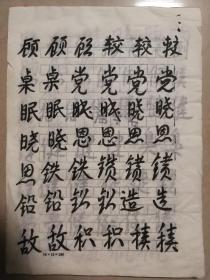 顾顾顾较较较
桌桌党党党党
眠眠眠晓晓晓
晓晓恩恩恩
恩铁铁绩绩
铅铅造造
敌敌积积積積